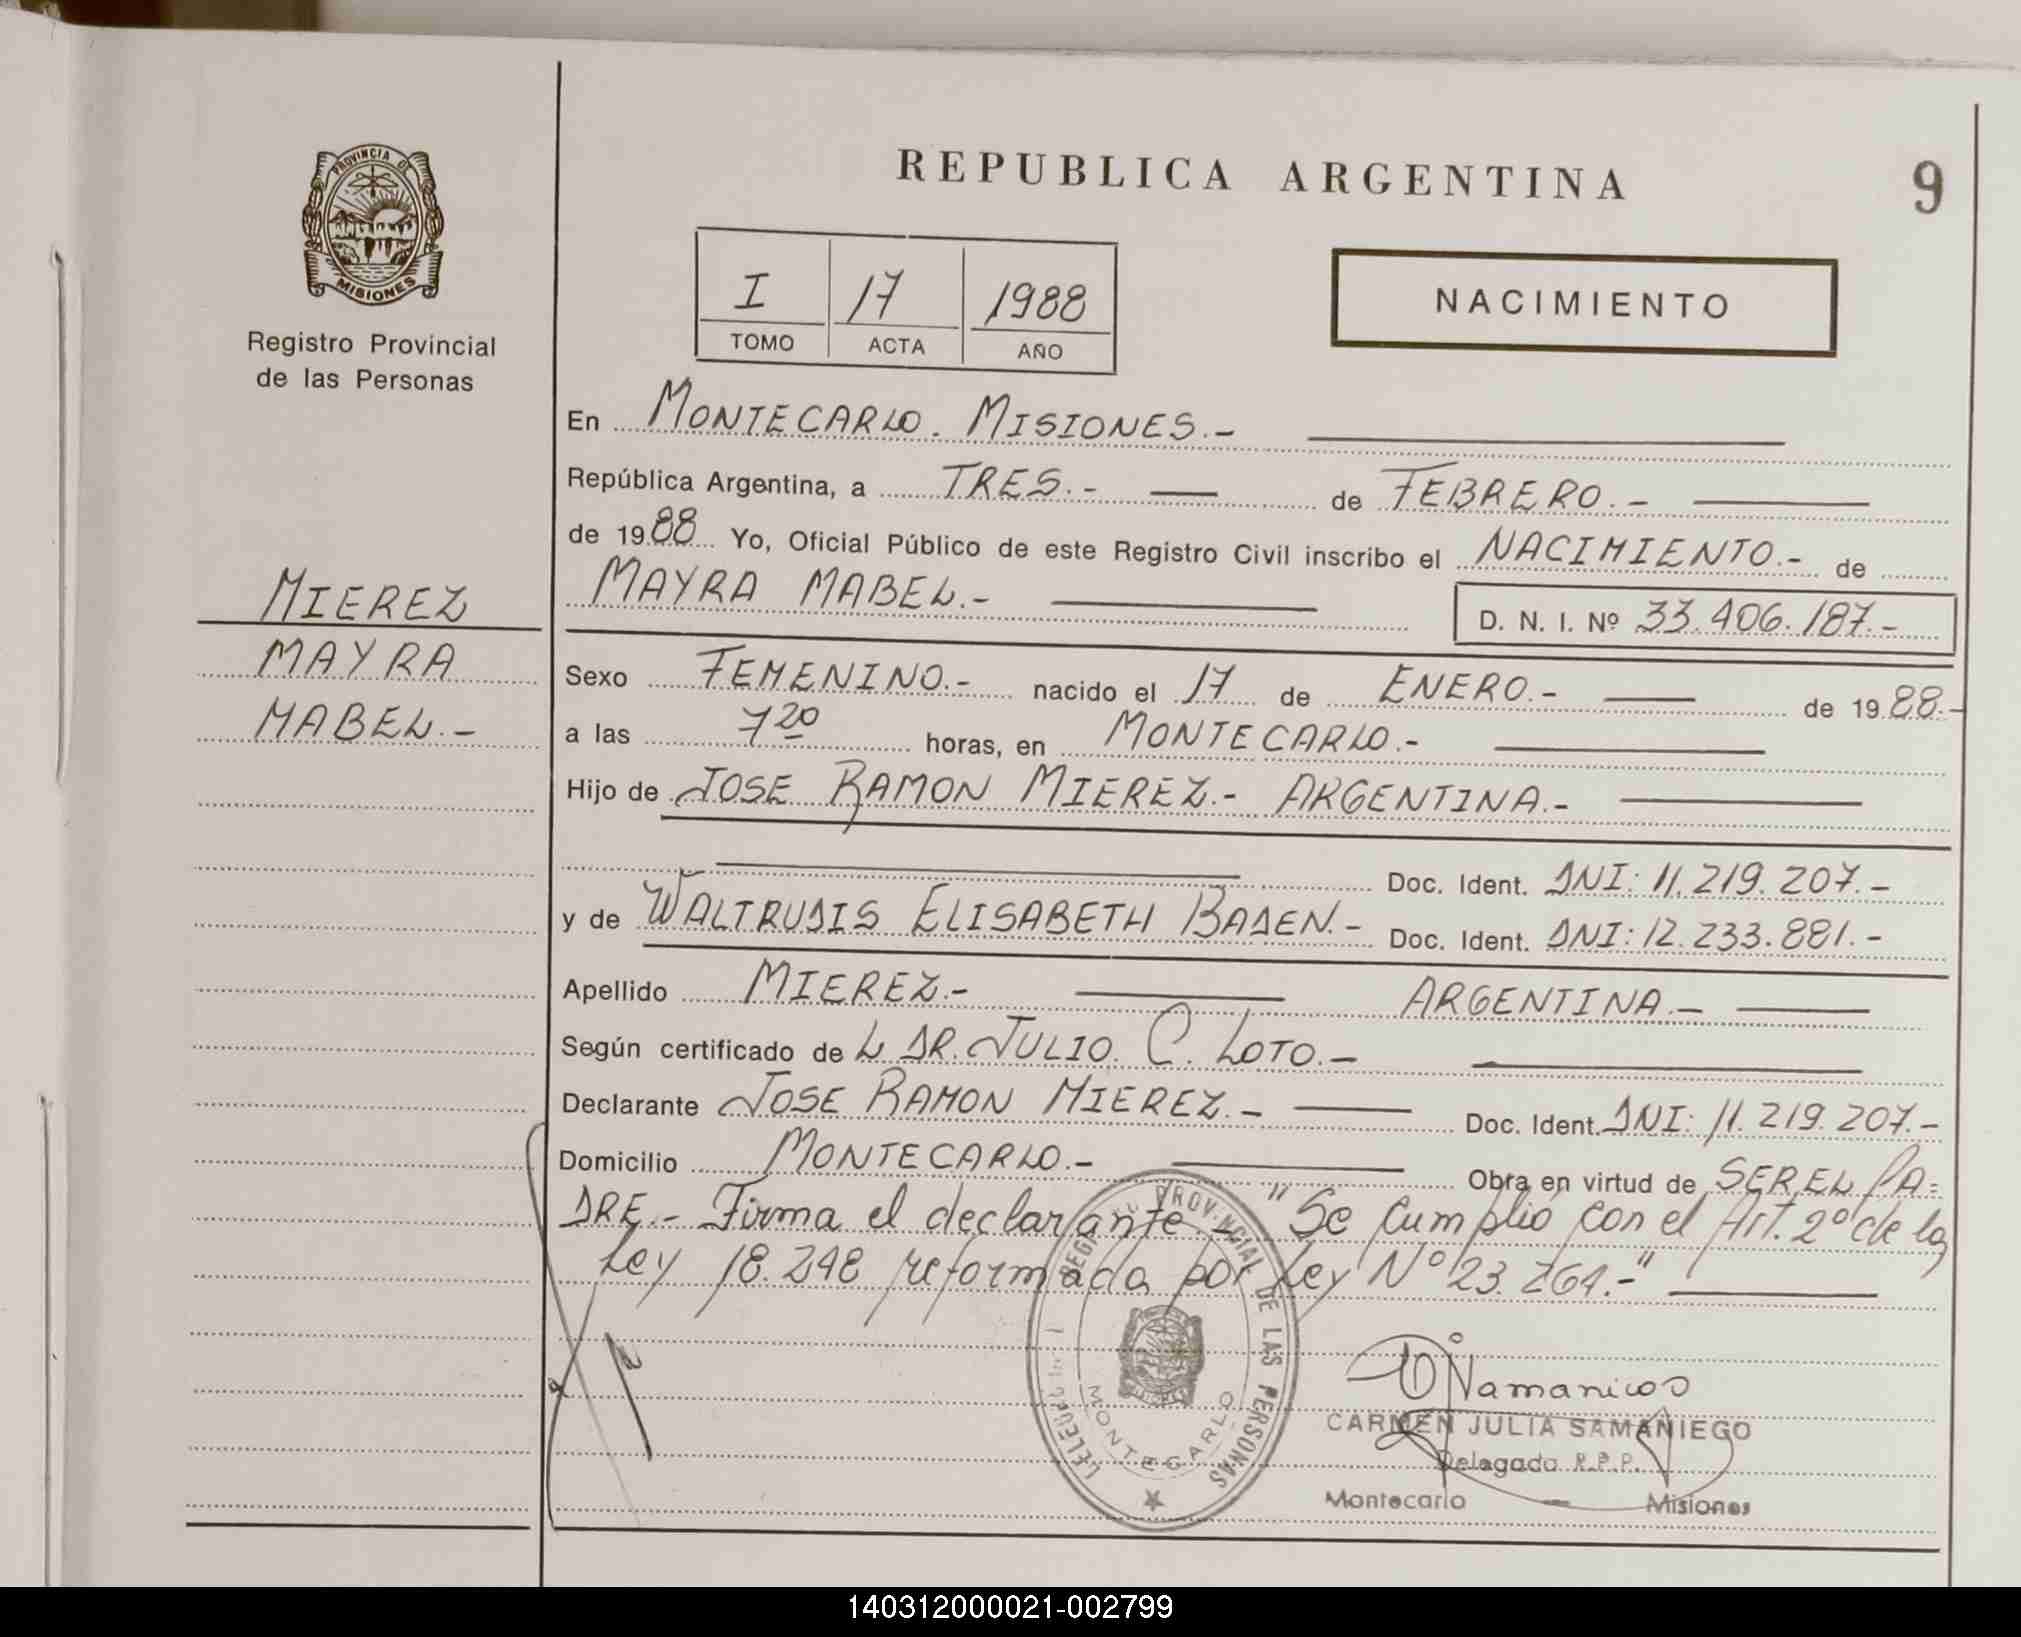 REPUBLICA ARGENTINA
9
PROVINCIA DE MISIONES
Registro Provincial
de las Personas
I 17 1988
TOMO ACTA AÑO
NACIMIENTO
En MONTECARLO. MISIONES.-
República Argentina, a TRES.- de FEBRERO.-
de 1988 Yo, Oficial Público de este Registro Civil inscribo el NACIMIENTO.- de
MAYRA MABEL.-
D. N. I. Nº 33.406.187.-
MIEREZ
MAYRA
MABEL.-
Sexo FEMENINO.- nacido el 17 de ENERO.- de 1988.-
a las 7 20 horas, en MONTECARLO.-
Hijo de JOSE RAMON MIEREZ.- ARGENTINA.-
Doc. Ident. DNI: 11.219.207.-
y de WALTRUDIS ELISABETH BADEN.- Doc. Ident. DNI: 12.233.881.-
Apellido MIEREZ.- ARGENTINA.-
Según certificado de L DR. JULIO C. LOTO.-
Declarante JOSE RAMON MIEREZ.- Doc. Ident. DNI: 11.219.207.-
Domicilio MONTECARLO.- Obra en virtud de SER EL PA=
DRE.- Firma el declarante.- "Se cumplió con el Art. 2º de la
Ley 18.248 reformada por Ley Nº 23.264.-"
PROVINCIAL DE LAS PERSONAS
MONTECARLO
CARMEN JULIA SAMANIEGO
Delegada R.P.P.
Montecarlo - Misiones
140312000021-002799